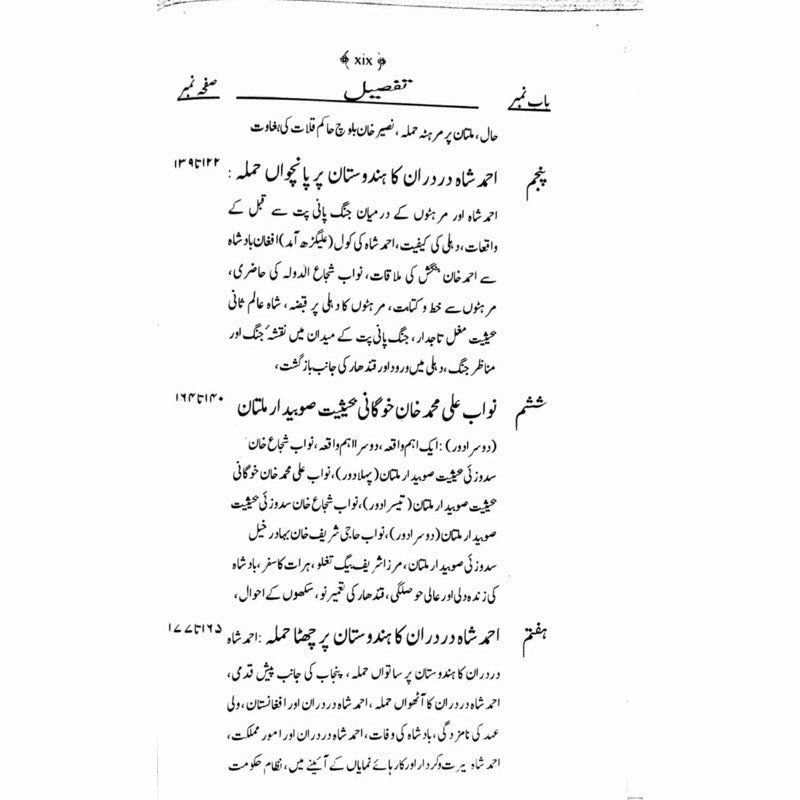 xix
باب نمبر تفصیل صفحہ نمبر
حال، ملتان پر مرہٹہ حملہ، نصیر خان بلوچ حاکم قلات کی بغاوت
پنجم احمد شاہ در دران کا ہندوستان پر پانچواں حملہ : ۱۲۲ تا ۱۳۹
احمد شاہ اور مرہٹوں کے درمیان جنگ پانی پت سے قبل کے
واقعات، دہلی کی کیفیت، احمد شاہ کی کول (علیگڑھ آمد) افغان بادشاہ
سے احمد خان بنگش کی ملاقات، نواب شجاع الدولہ کی حاضری،
مرہٹوں سے خط و کتابت، مرہٹوں کا دہلی پر قبضہ، شاہ عالم ثانی
بحیثیت مغل تاجدار، جنگ پانی پت کے میدان میں نقشۂ جنگ اور
مناظر جنگ، دہلی میں ورود اور قندھار کی جانب بازگشت،
ششم نواب علی محمد خان خوگانی بحیثیت صوبیدار ملتان ۱۴۰ تا ۱۶۴
(دوسرا دور) : ایک اہم واقعہ، دوسرا اہم واقعہ، نواب شجاع خان
سدوزئی بحیثیت صوبیدار ملتان (پہلا دور)، نواب علی محمد خان خوگانی
بحیثیت صوبیدار ملتان (تیسرا دور)، نواب شجاع خان سدوزئی بحیثیت
صوبیدار ملتان (دوسرا دور)، نواب حاجی شریف خان بہادر خیل
سدوزئی صوبیدار ملتان، مرزا شریف بیگ تغلو، ہرات کا سفر، بادشاہ
کی زندہ دلی اور عالی حوصلگی، قندھار کی تعمیر نو، سکھوں کے احوال،
ہفتم احمد شاہ در دران کا ہندوستان پر چھٹا حملہ : احمد شاہ ۱۶۵ تا ۱۷۷
در دران کا ہندوستان پر ساتواں حملہ، پنجاب کی جانب پیش قدمی،
احمد شاہ در دران کا آٹھواں حملہ، احمد شاہ در دران اور افغانستان، ولی
عہد کی نامزدگی، بادشاہ کی وفات، احمد شاہ در دران اور امور مملکت،
احمد شاہ سیرت و کردار اور کارہائے نمایاں کے آئینے میں، نظام حکومت